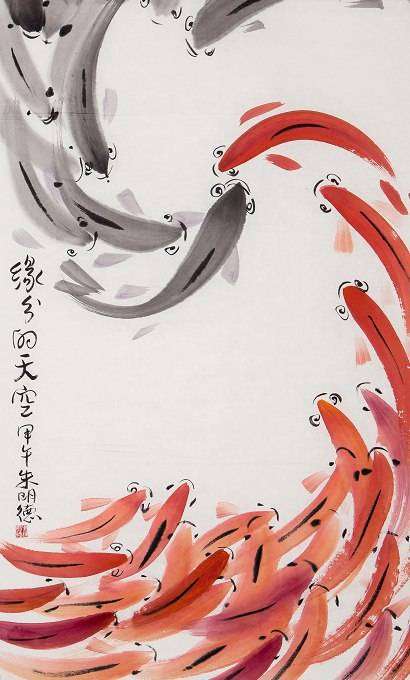 缘分的天空甲午朱明德